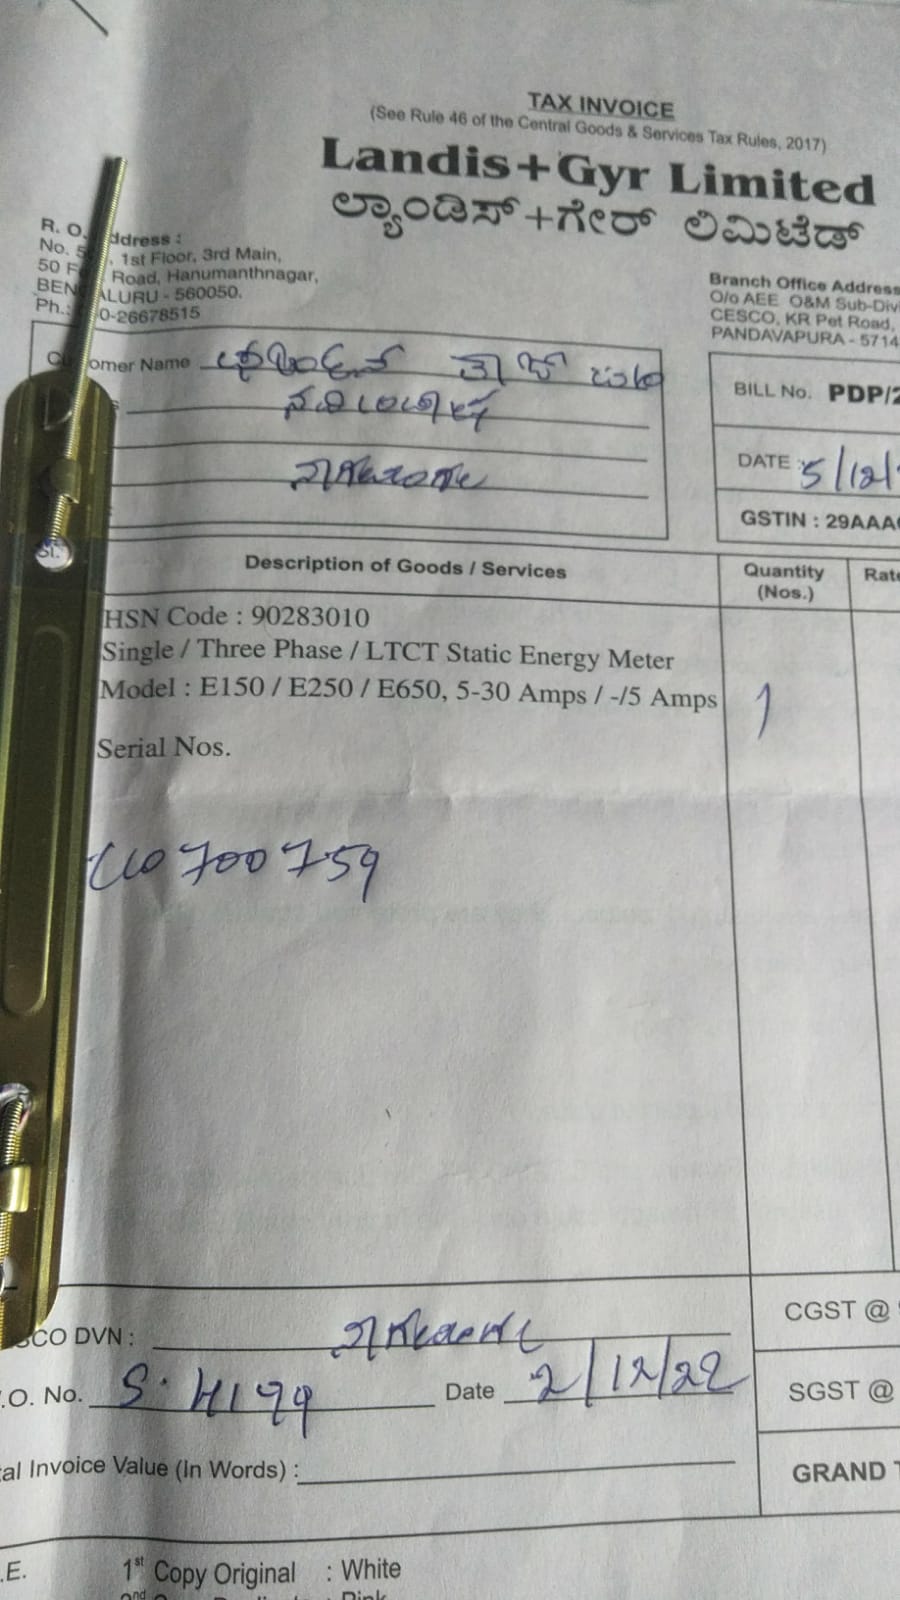 TAX INVOICE
(See Rule 46 of the Central Goods & Services Tax Rules, 2017)
Landis+Gyr Limited
ಲ್ಯಾಂಡಿಸ್+ಗೇರ್ ಲಿಮಿಟೆಡ್
R. O. ddress :
No. 1st Floor, 3rd Main,
50 F Road, Hanumanthnagar,
BEN ALURU - 560050.
Ph.: 0-26678515
Branch Office Address
O/o AEE O&M Sub-Divi
CESCO, KR Pet Road,
PANDAVAPURA - 5714
omer Name
BILL No. PDP/2
DATE : 5/12/
GSTIN : 29AAA
Sl.
Description of Goods / Services
Quantity
(Nos.)
Rate
HSN Code : 90283010
Single / Three Phase / LTCT Static Energy Meter
Model : E150 / E250 / E650, 5-30 Amps / -/5 Amps
1
Serial Nos.
700759
CO DVN :
.O. No. S. 4199 Date 2/12/22
al Invoice Value (In Words) :
CGST @
SGST @
GRAND T
.E. 1st Copy Original : White